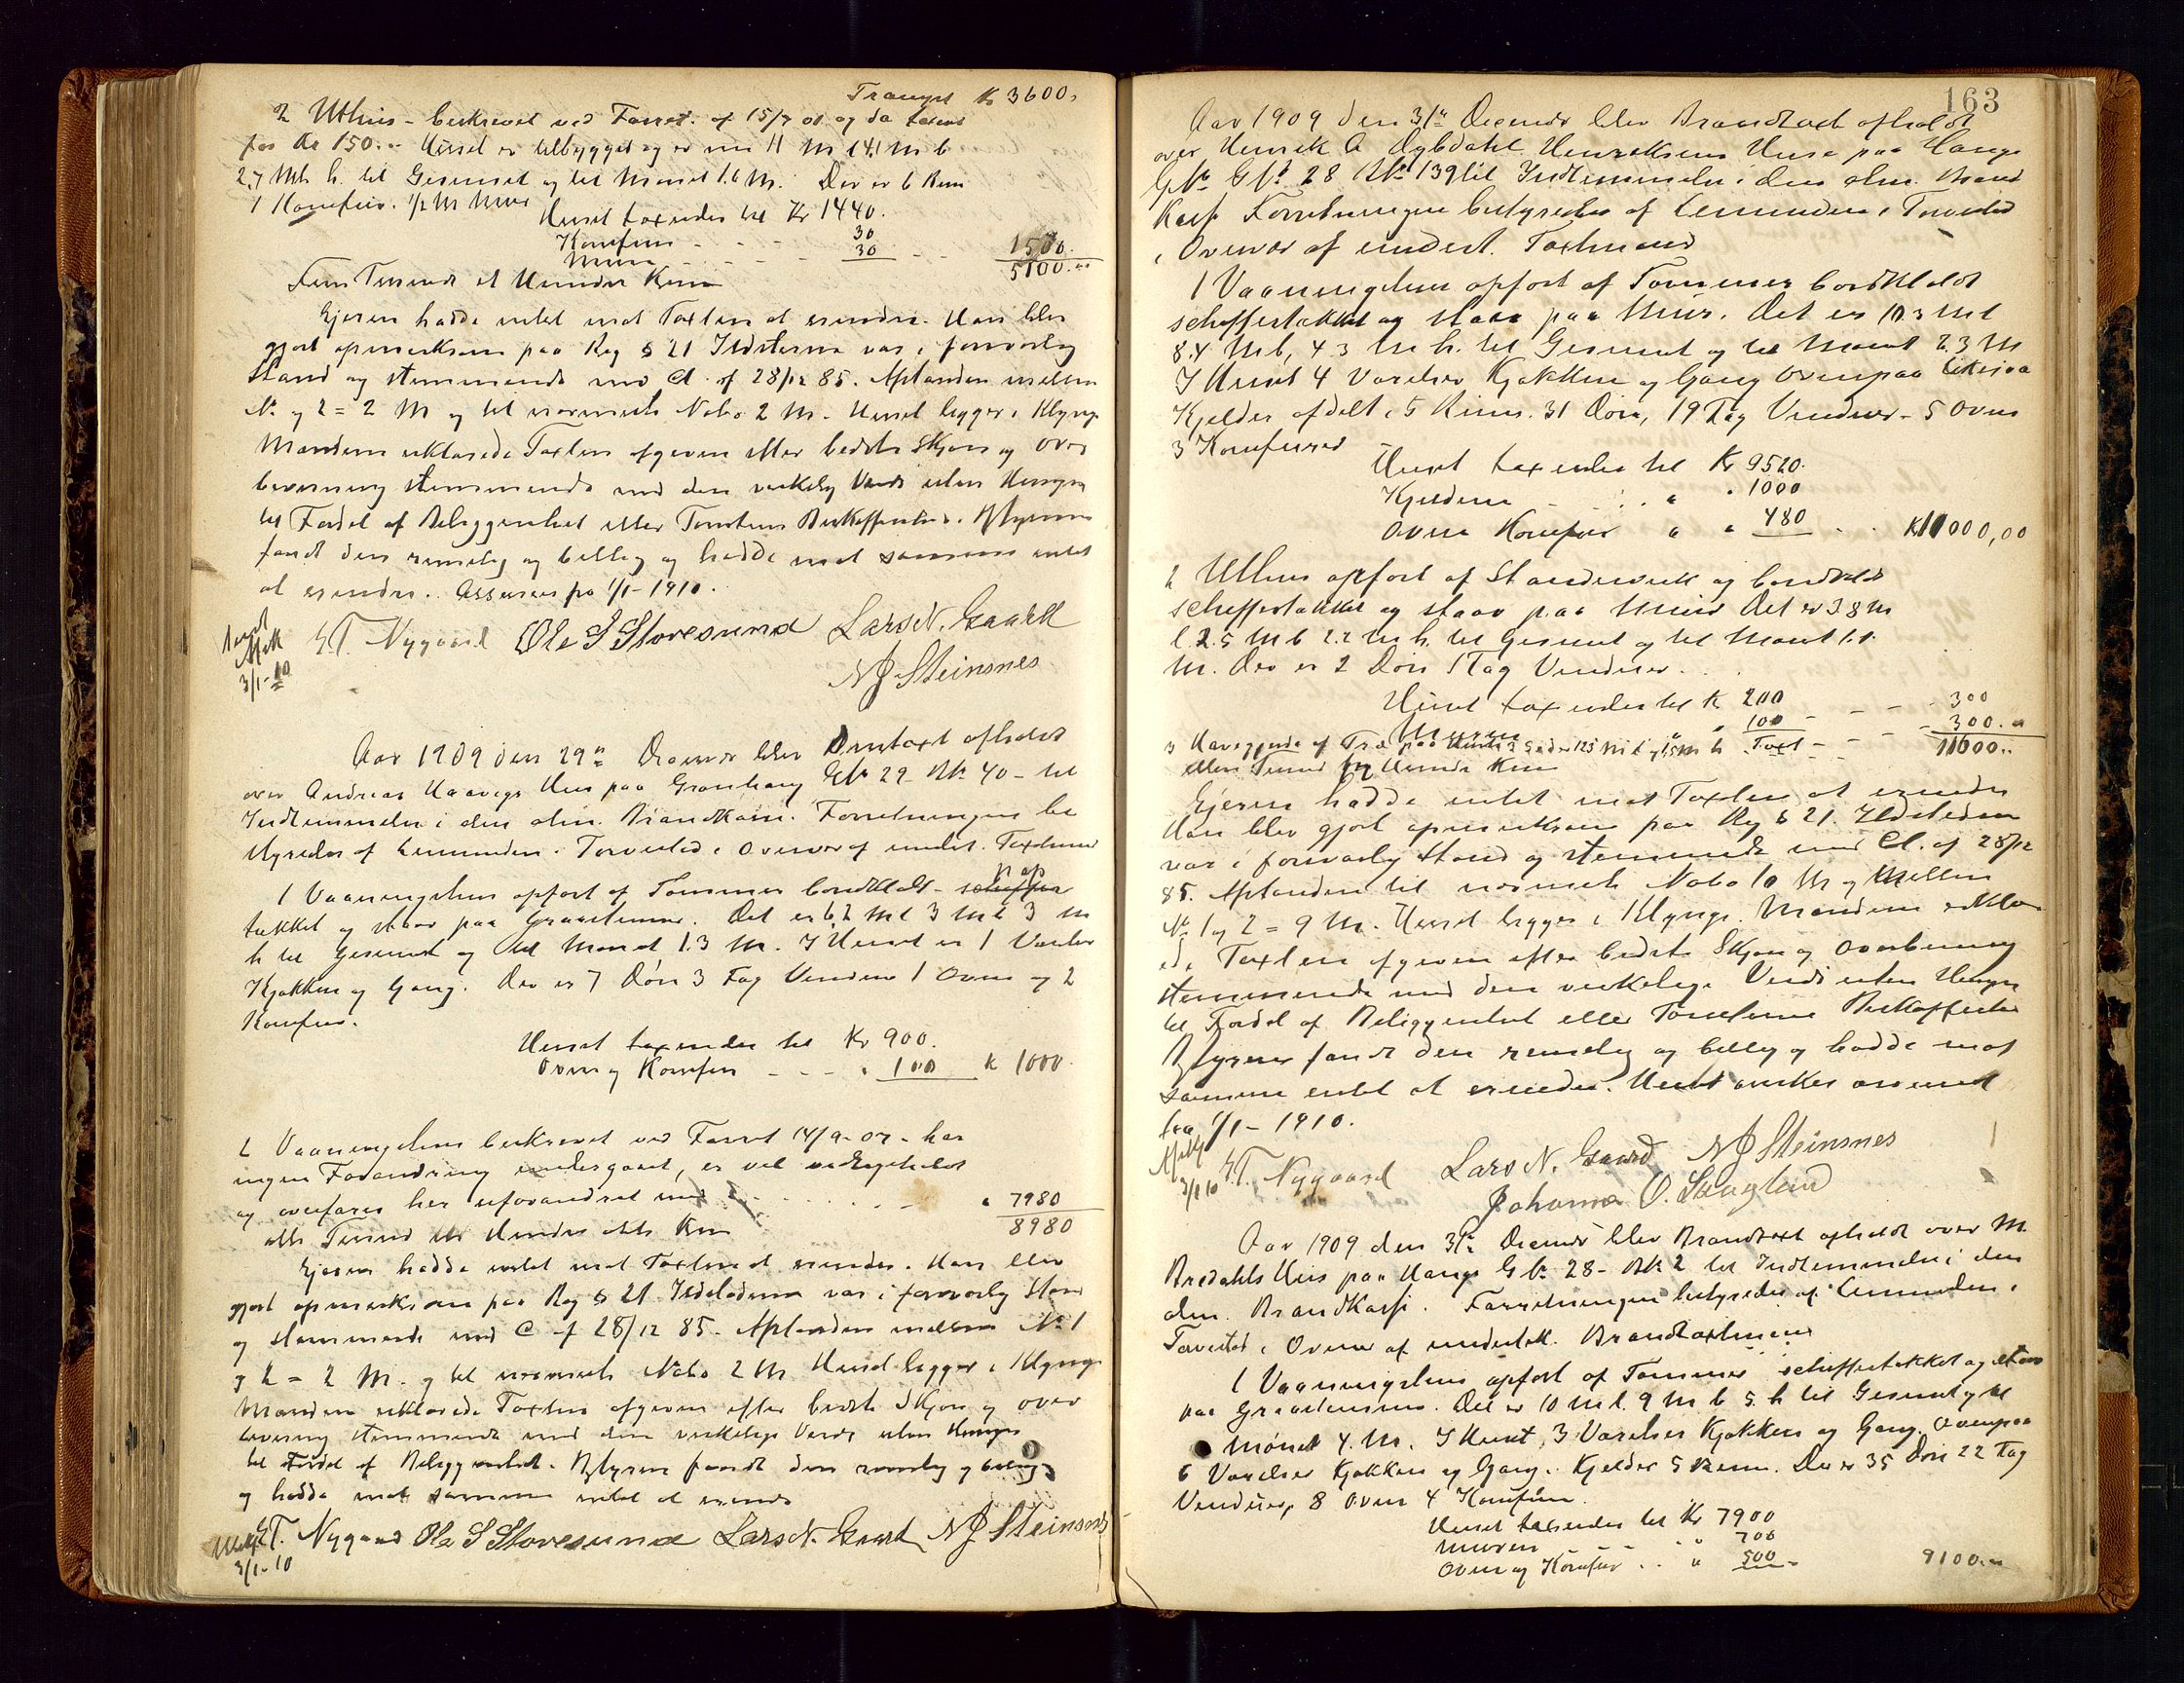 Transpt Kr 3600,
2 Uthus - beskrevet ved Forret. af 15/7 01 og da taxeret
for Kr 150.- Huset er tilbygget og er nu 11 M l 4,1 M b
2,7 Mtr h. til Gesimset og til Mønet 1.6 M. Der er 6 Rum
1 Komfur. 1/2 M Mur
Huset taxeredes til Kr 1440.
Komfur - - - 30
Muren - - - - 30 - - 1500.
5100.
Fem Tusinde et Hundre Kroner
Ejeren hadde intet mot Taxten at erindre. Han blev
gjort opmerksom paa Reg § 21 Ildstederne var i forsvarlig
Stand og stemmende med Cl. af 28/12 85. Afstanden mellem
No 1 og 2 = 2 M og til nærmeste Nabo 2 M. Huset ligger i Klynge
Mændene erklærede Taxten afgiven efter bedste Skjøn og over
bevisning stemmende med den verkelig Værdi uten Hensyn
til Fordel af Beliggenhet eller Tomtens Beskaffenhed. Bestyreren
fandt den rimelig og billig og hadde mot samme intet
at erindre. Assureres fra 1/1 - 1910.
E.T. Nygaard Ole S Storesund Lars N. Gaard
3/1-10
N J Steinsnes
Aar 1909 den 29de Decembr blev Omtaxt afholdt
over Andreas Haavigs Hus paa Gronhaug Gbr 29 - Bk 40 - til
Indlemmelse i den alm. Brandkasse. Forretningen be
styredes af Lensmanden i Torvestad i Overvær af undert. Taxtmænd
1 Vaaningshus opført af Tømmer bordklædt - pap
tækket og staar paa Graastensmur. Det er 6,2 M l 3 M b 3 M
h til Gesimset og til Mønet 1.3 M. I Huset er 1 Værelse
Kjøkken og Gang. Der er 7 Dører 3 Fag Vinduer 1 Ovn og 2
Komfur.
Huset taxeredes til Kr 900.
Ovn og Komfur - - - " 100 K 1000.
2 Vaaningshus beskrevet ved Forret 14/9 - 07 - har
ingen Forandring undergaaet, er vel vedligeholdt
og overføres her uforandret med . . . . . " 7980
8980
otte Tusind ni Hundre otti Kroner
Ejeren hadde intet mot Taxten at erindre. Han blev
gjort opmerksom paa Reg § 21 Ildstederne var i forsvarlig Stand
og stemmende med C af 28/12 85. Afstanden mellem No 1
og 2 = 2 M. og til nærmeste Nabo 2 M Huset ligger i Klynge
Mændene erklærede Taxten afgiven efter bedste Skjøn og over
bevisning stemmende med den virkelige Værdi uten Hensyn
til Fordel af Beliggenhet. Bestyreren fandt den rimelig og billig
og hadde mot samme intet at erindre
E.T. Nygaard Ole S Storesund Lars N. Gaard N J Steinsnes
3/1-10
163
Aar 1909 den 31te Decembr blev Brandtaxt afholdt
over Henrik A Dybdahl Henriksens Huse paa Hauge
Gbr 28 Bk 139 til Indlemmelse i den alm. Brand
kasse Forretningen bestyredes af Lensmanden i Torvestad
i Overvær af undert. Taxtmænd
1 Vaaningshus opført af Tømmer bordklædt
schiffertækket og staar paa Mur. Det er 10 3 M l
8.4 M b, 4 3 M h. til Gesimset og til Mønet 2.3 M
I Huset 4 Værelser Kjøkken og Gang Ovenpaa likesaa
Kjelder afdelt i 5 Rum. 31 Døre, 19 Fag Vinduer - 5 Ovne
3 Komfurer
Huset taxeredes til Kr 9520.
Kjelderen - . . " " 1000
Ovne Komfur " " 480 . . Kr 11000,00
2 Uthus opført af Standerverk og bordklædt
schiffertækket og staar paa Mur Det er 3 8 M
l. 2.5 M b 2.2 M h. til Gesimset og til Mønet 1.1
M. Der er 2 Dører 1 Fag Vinduer . .
Huset taxeredes til K 200
Muren " " 100 - - - 300
300.
Taxt - - 11600.
elleve Tusind sex Hundre Kroner
Ejeren hadde intet mot Taxten at erindre
Han blev gjort opmerksom paa Reg § 21. Ildstederne
var i forsvarlig Stand og stemmende med Cl. af 28/12
85. Afstanden til nærmeste Nabo 10 M og mellem
No 1 og 2 = 9 M. Huset ligger i Klynge. Mændene erklær
ede Taxten afgiven efter bedste Skjøn og Overbevisning
stemmende med den verkelige Verdi uten Hensyn
til Fordel af Beliggenhet eller Tomternes Beskaffenhed
Bestyreren fandt den rimelig og billig og hadde mot
samme intet at erindre. Huset ønskes assureret
fra 1/1 - 1910.
3/1 10 E.T. Nygaard Lars N. Gaard N J Steinsnes
Johannes O.
Aar 1909 den 31te Decembr blev Brandtaxt afholdt over M.
Bredahls Hus paa Hauge Gbr 28 - Bk 2 til Indlemmelse i den
alm. Brandkasse. Forretningen bestyredes af Lensmanden i
Torvestad i Overvær af undertek. Brandtaxtmænd
1 Vaaningshus opført af Tømmer schiffertækket og staar
paa Graastensmur. Det er 10 M l. 9 M b 5. h til Gesimset og til
Mønet 4. M. I Huset, 3 Værelser Kjøkken og Gang. Ovenpaa
6 Værelser Kjøkken og Gang. Kjelder 5 Rum. Der er 35 Dører 22 Fag
Vinduer, 8 Ovne 4 Komfurer.
Huset taxeredes til Kr 7900
Muren - - " 700
Ovne og Komfur . . " 500 - 9100.